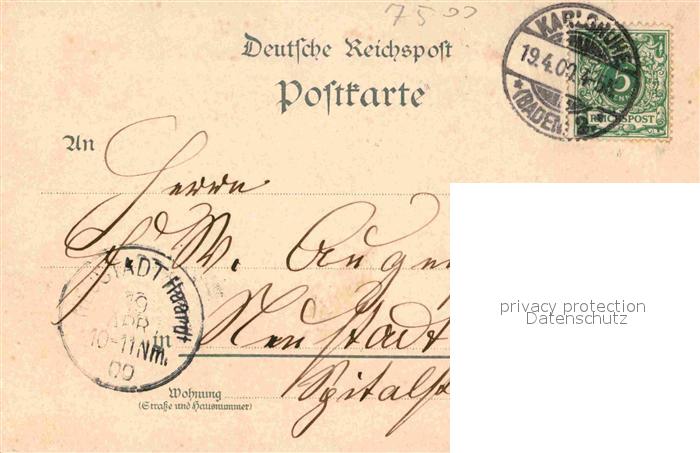 75 00
Deutsche Reichspost
Postkarte
KARLSRUHE
19.4.00.
(BADEN)
5
REICHSPOST
An
Herrn
W. Augen
Neustadt
in
Spitalst
STADT Haardt
19
APR
10-11Nm.
00
Wohnung
(Straße und Hausnummer)
privacy protection
Datenschutz